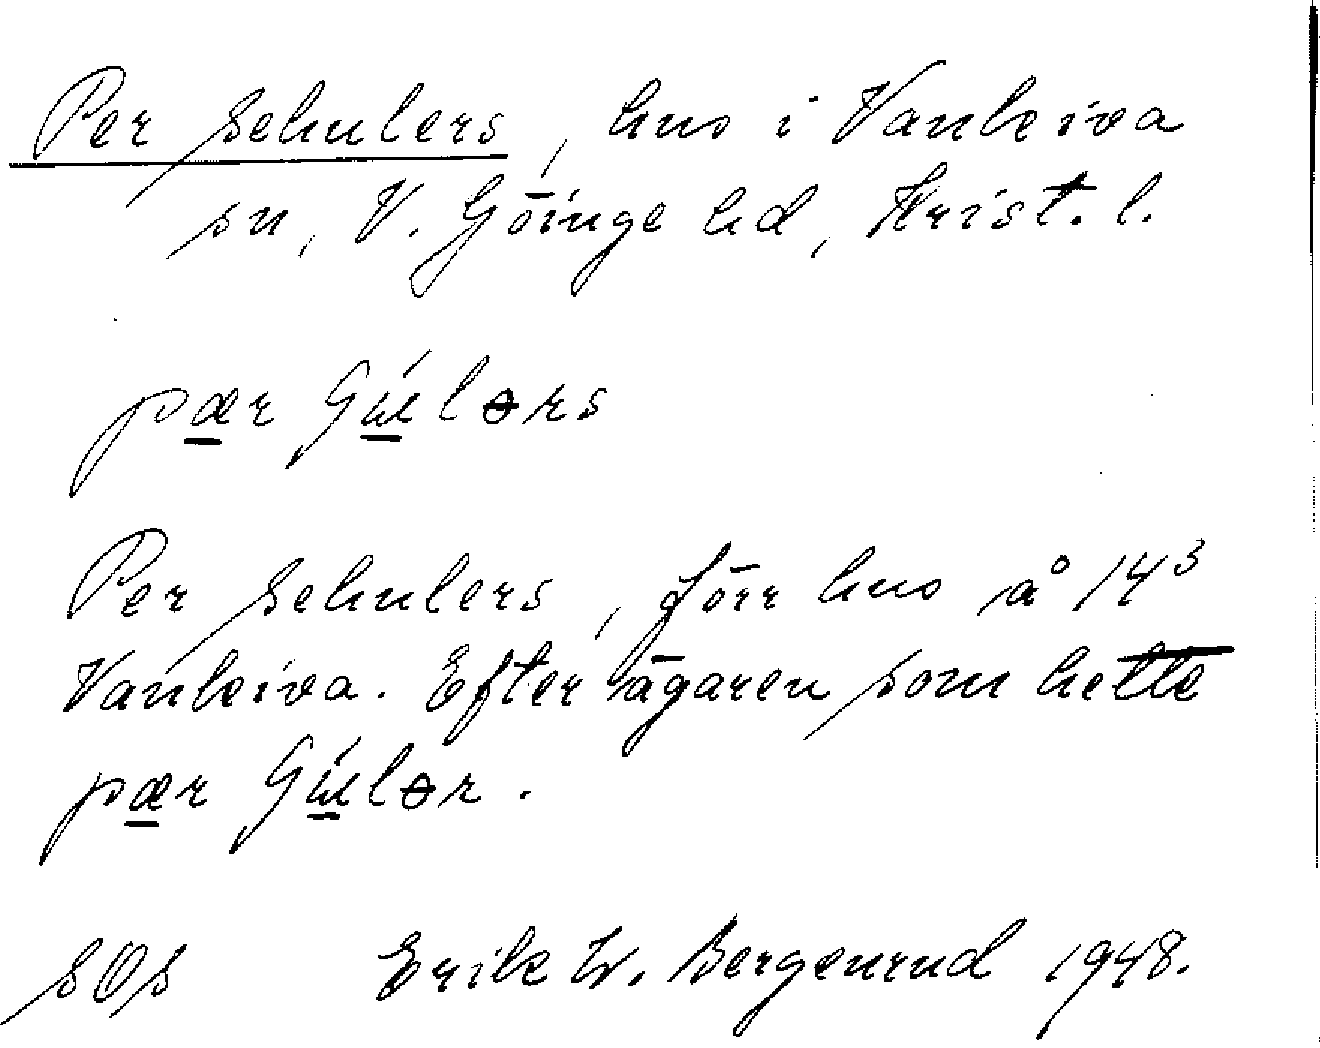 Per Schulers, hus i Vankiva
sn, V. Göinge hd, Krist. l.
pær ʃúlərs
Per Schulers, förr hus å 14³
Vankiva. Efter ägaren som hette
pær ʃúlər.
SOS Erik W. Bergenrud 1948.